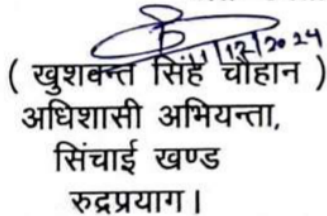 11/12/2024
( खुशवन्त सिंह चौहान )
अधिशासी अभियन्ता,
सिंचाई खण्ड
रुद्रप्रयाग।